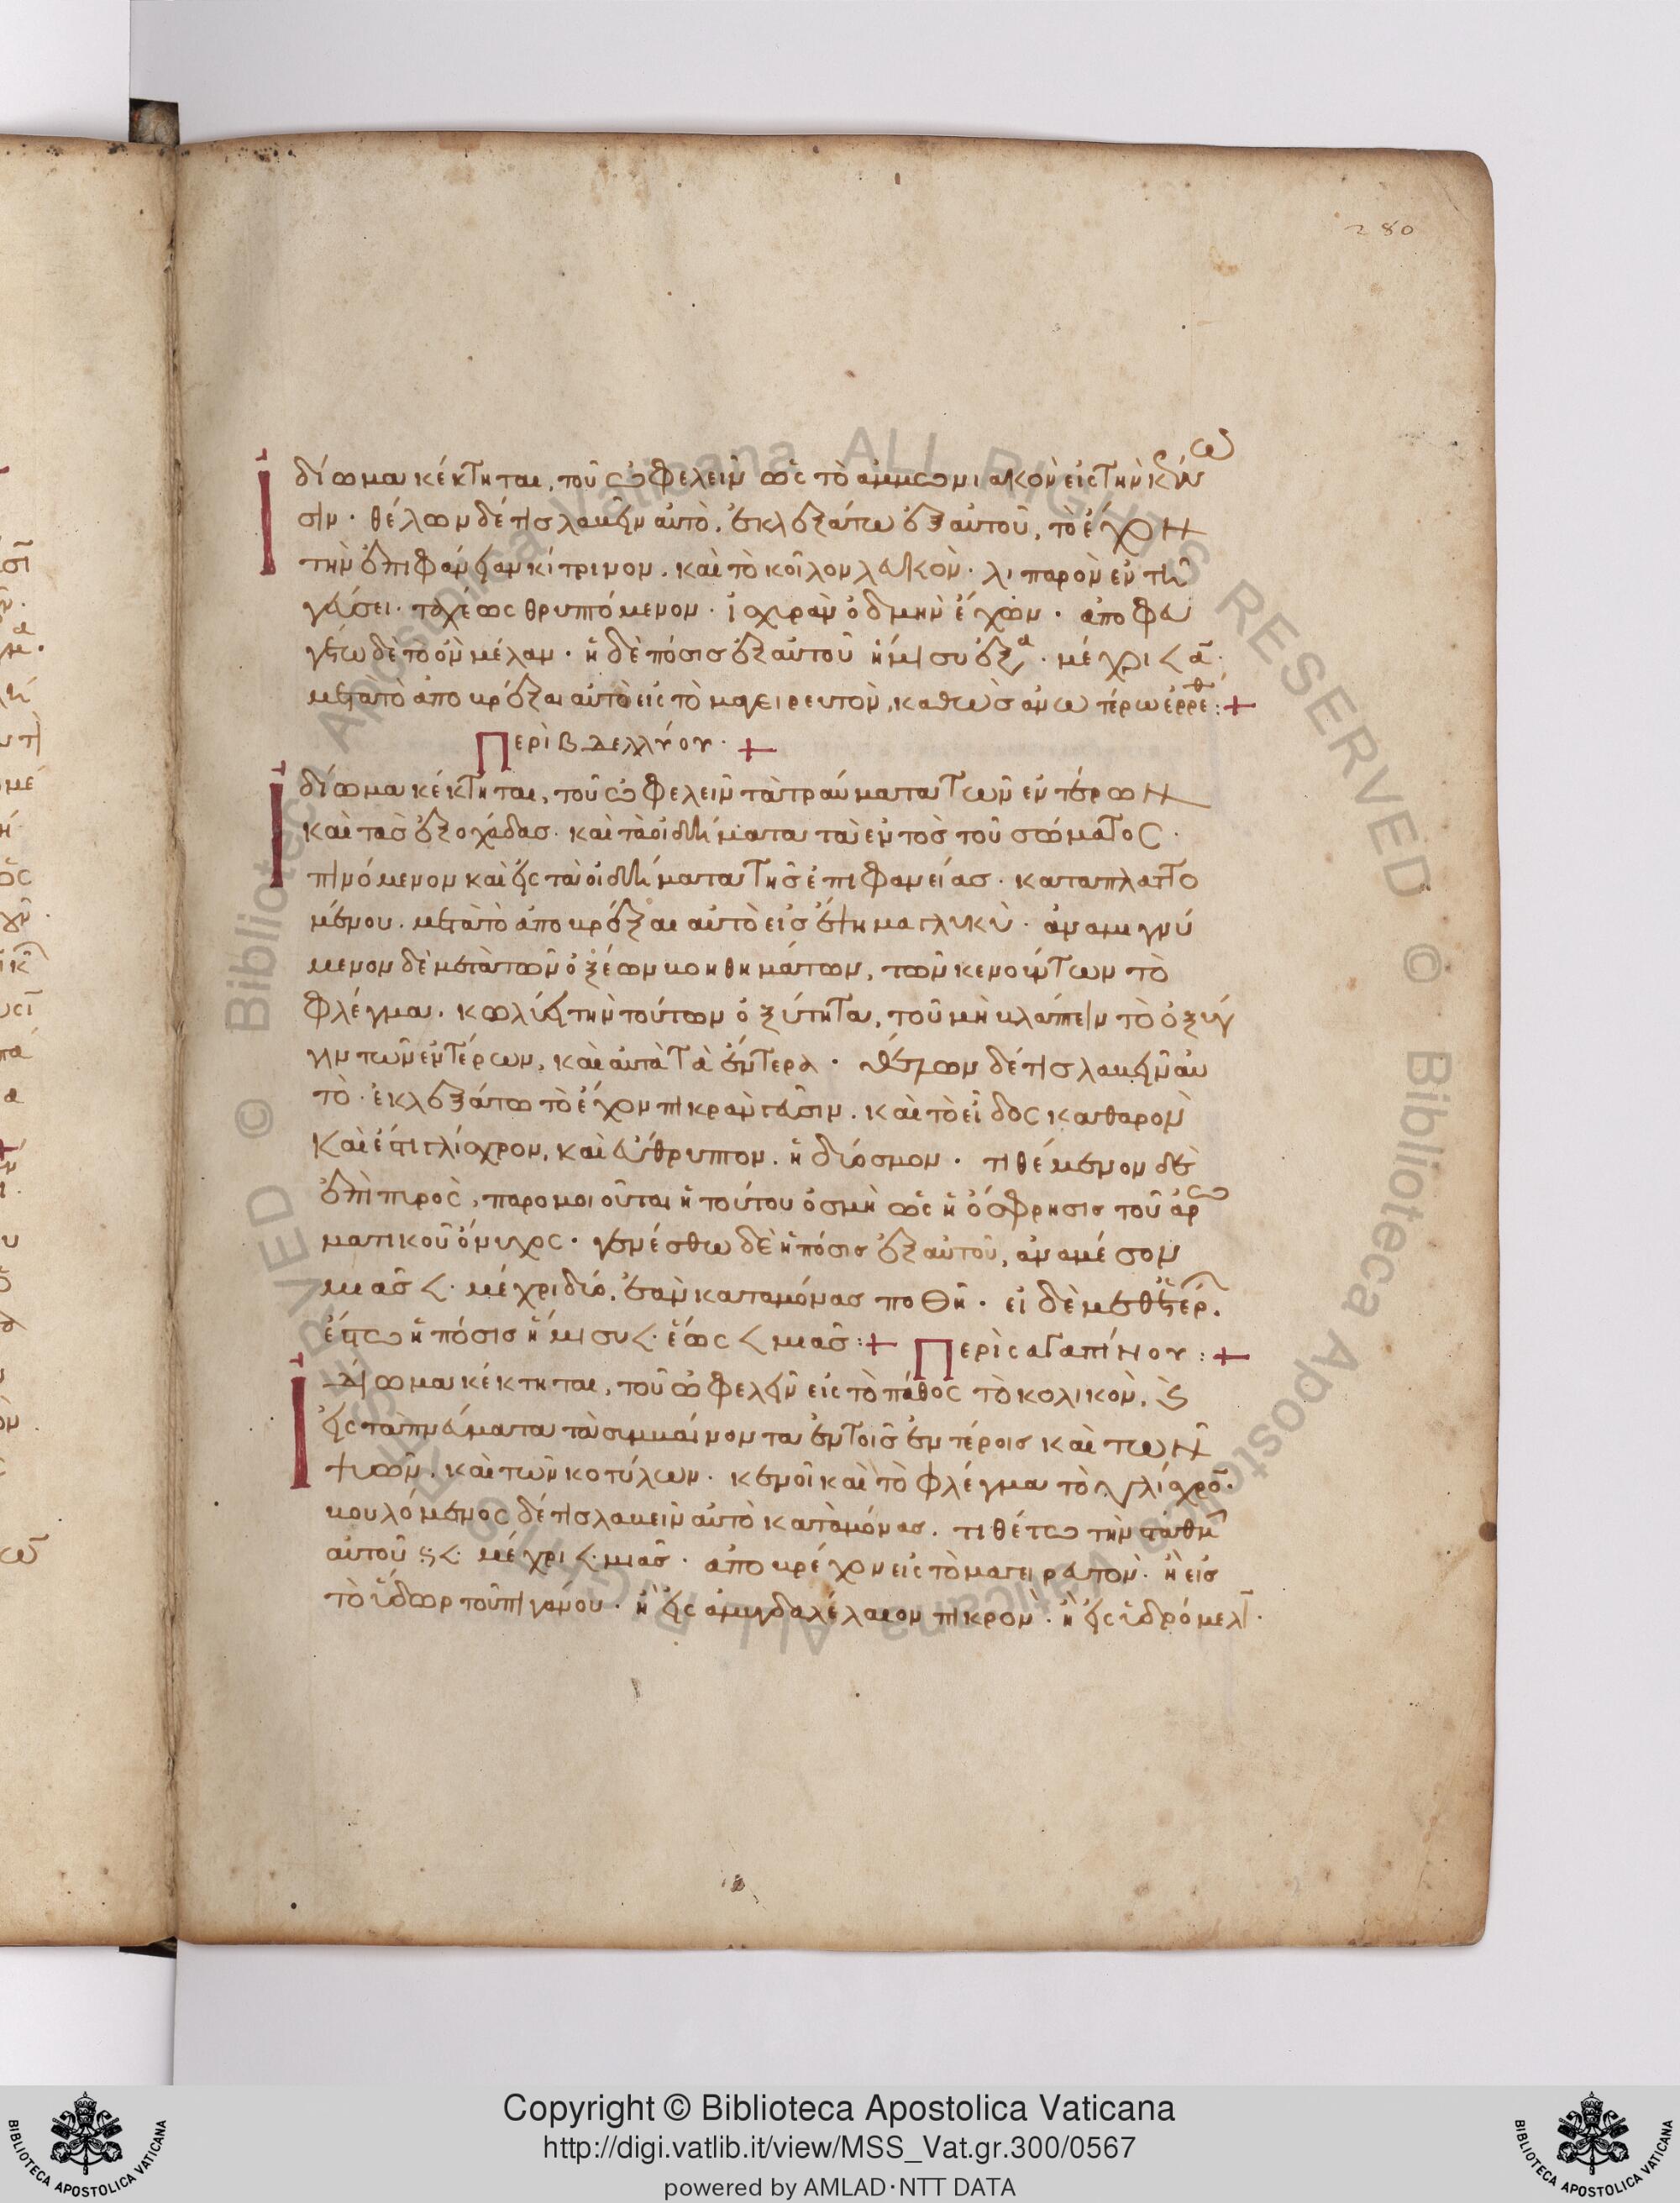 280
Ἰδίωμα κέκτηται, τοῦ ὠφελεῖν ὡς τὸ ἀμμωνιακὸν εἰς τὴν κένω
σιν · θέλων δέ τις λαβεῖν αὐτὸ, ἐκλεξάτω ἐξ αὐτοῦ, τὸ ἔχον
τὴν ἐπιφάνειαν κίτρινον. καὶ τὸ κοῖλον λευκὸν · λιπαρὸν ἐν τῇ
γεύσει · ταχέως θρυπτόμενον · ἰσχυρὰν ὀδμὴν ἔχων · ἀποφευ
γέτω δὲ τὸ ὂν μέλαν · ἡ δὲ πόσις ἐξ αὐτοῦ ἥμισυ · μέχρι
μετὰ τὸ ἀποβρέξαι αὐτὸ εἰς τὸ μαγειρευτὸν, καθὼς ἀνωτέρω ἐρρέθ :+
Περὶ βδελλύου · +
Ἰδίωμα κέκτηται, τοῦ ὠφελεῖν τὰ τραύματα τῶν ἐντέρων
καὶ τὰς ἐξοχάδας · καὶ τὰ οἰδήματα τὰ ἐντὸς τοῦ σώματος ·
πινόμενον καὶ εἰς τὰ οἰδήματα τῆς ἐπιφανείας · καταπλαττο
μένου. μετὰ τὸ ἀποβρέξαι αὐτὸ εἰς ἕψημα γλυκὺ · ἀναμιγνύ
μενον δὲ μετὰ τῶν ὀξέων βοηθημάτων, τῶν κενούντων τὸ
φλέγμα. κωλύει τὴν τούτων ὀξύτητα, τοῦ μὴ βλάπτειν τὸ ὀξύγ
γιν τῶν ἐντέρων, καὶ αὐτὰ τὰ ἔντερα · θέλων δέ τις λαβεῖν αὐ
τὸ · ἐκλεξάτω τὸ ἔχον πικρὰν γεῦσιν. καὶ τὸ εἶδος καθαρὸν
καὶ ἔτι γλίσχρον, καὶ εὔθρυπτον. ἡδύοσμον · τιθέμενον δὲ
ἐπὶ πυρὸς, παρομοιοῦται ἡ τούτου ὀσμὴ ὡς ἡ ὄσφρησις τοῦ ἀρω
ματικοῦ ὄνυχος · γενέσθω δὲ ἡ πόσις ἐξ αὐτοῦ, ἀναμέσον
μιᾶς 𐅶 · μέχρι δύο, ἐὰν καταμόνας ποθῇ · εἰ δὲ μεθ' ἑτέρ.
ἔστω ἡ πόσις ἥμισυ 𐅶 · ἕως 𐅶 μιᾶς :+ Περὶ σαγαπίνου :+
Ἰδίωμα κέκτηται, τοῦ ὠφελεῖν εἰς τὸ πάθος τὸ κολικὸν, καὶ
εἰς τὰ πνεύματα τὰ συμβαίνοντα ἐν τοῖς ἐντέροις καὶ τῶν
ψυῶν. καὶ τῶν κοτύλων · κενοῖ καὶ τὸ φλέγμα τὸ γλίσχρον ·
βουλόμενος δέ τις λαβεῖν αὐτὸ καταμόνας. τιθέτω τὴν στάθμην
αὐτοῦ · μέχρι 𐅶 μιᾶς · ἀποβρέχον εἰς τὸ μαγειρευτὸν · ἢ εἰς
τὸ ὕδωρ τοῦ πηγάνου · ἢ εἰς ἀμυγδαλέλαιον πικρὸν · ἢ εἰς ὑδρόμελι ·
Copyright © Biblioteca Apostolica Vaticana
http://digi.vatlib.it/view/MSS_Vat.gr.300/0567
powered by AMLAD·NTT DATA